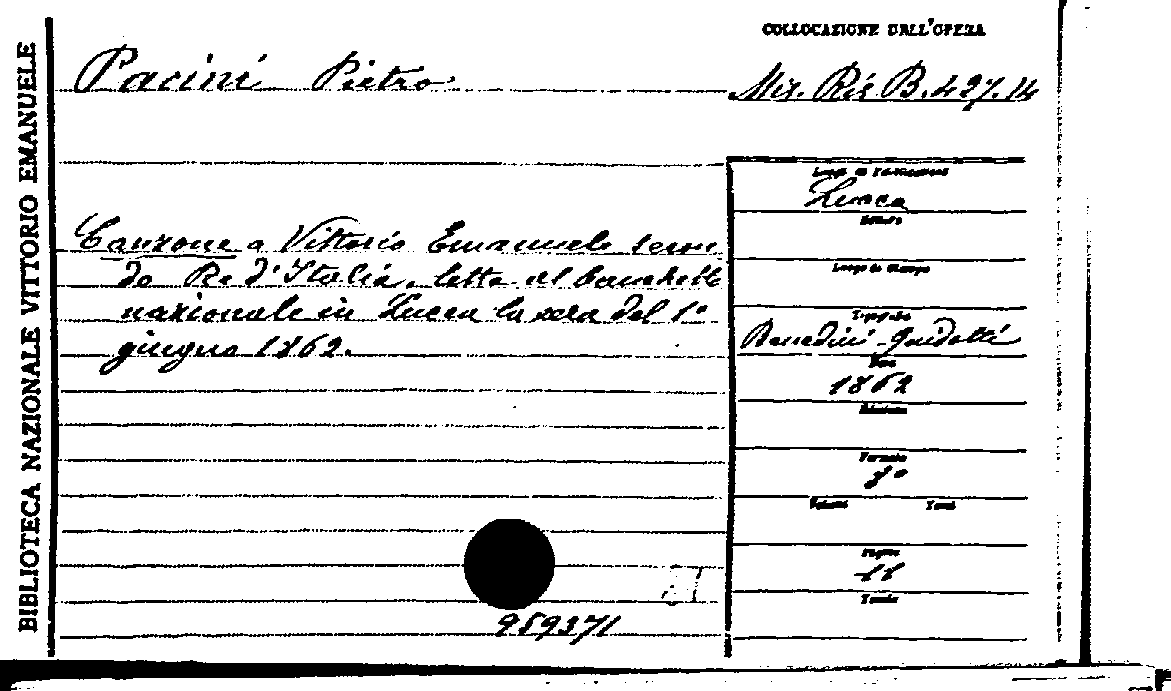 BIBLIOTECA NAZIONALE VITTORIO EMANUELE
COLLOCAZIONE DELL'OPERA
Pacini Pietro
Mis. Ris. B. 427. 14
Luogo di Pubblicazione
Lucca
Editore
Canzone a Vittorio Emanuele secon
do Re d'Italia, letta al banchetto
nazionale in Lucca la sera del 1°
giugno 1862.
Luogo di Stampa
Tipografo
Benedini-Guidotti
Data
1862
Edizione
Formato
8°
Volumi Tomi
Pagine
11
Tavole
959371